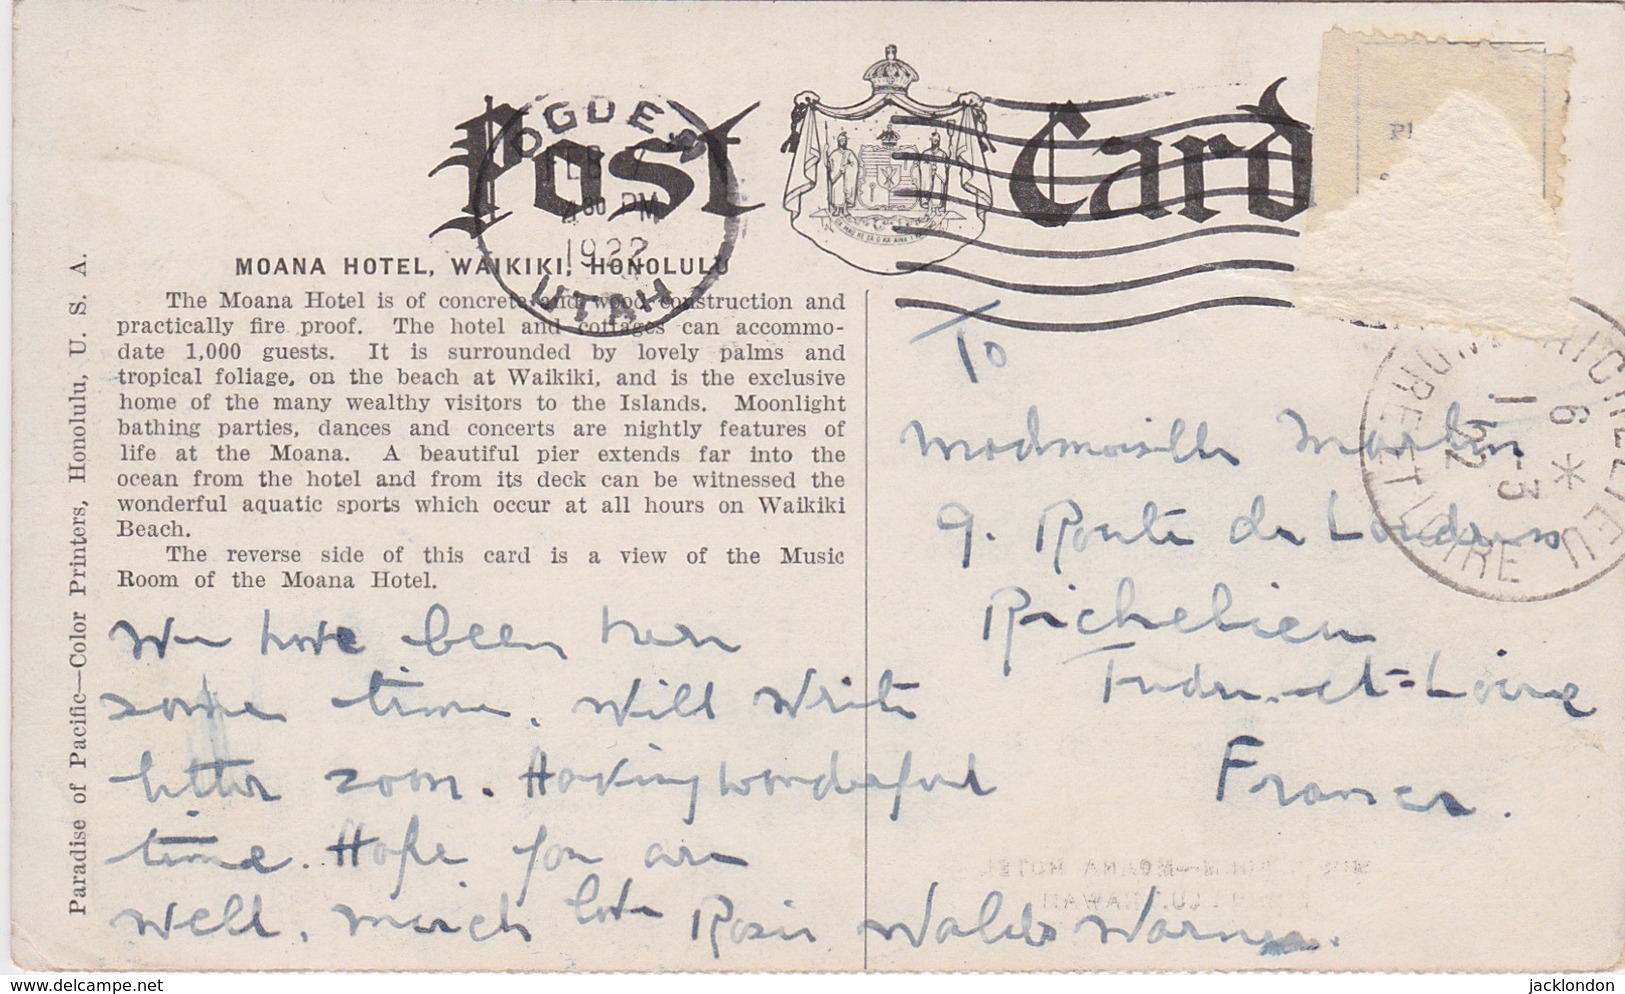 Post Card
OGDEN
FEB 7
4 00 PM
1922
UTAH
MOANA HOTEL, WAIKIKI, HONOLULU
The Moana Hotel is of concrete and wood construction and
practically fire proof. The hotel and cottages can accommo-
date 1,000 guests. It is surrounded by lovely palms and
tropical foliage, on the beach at Waikiki, and is the exclusive
home of the many wealthy visitors to the Islands. Moonlight
bathing parties, dances and concerts are nightly features of
life at the Moana. A beautiful pier extends far into the
ocean from the hotel and from its deck can be witnessed the
wonderful aquatic sports which occur at all hours on Waikiki
Beach.
The reverse side of this card is a view of the Music
Room of the Moana Hotel.
Paradise of Pacific—Color Printers, Honolulu, U. S. A.
We have been here
some time. Will write
letter soon. Having wonderful
time. Hope you are
well. much love Rosie Waldo Warner.
To
Madmoiselle
9. Route de Loudun
Richelieu
Indre-et-Loire
France.
RICHELIEU
6 *
1 -3
22
INDRE ET LOIRE
delcampe.net
jacklondon